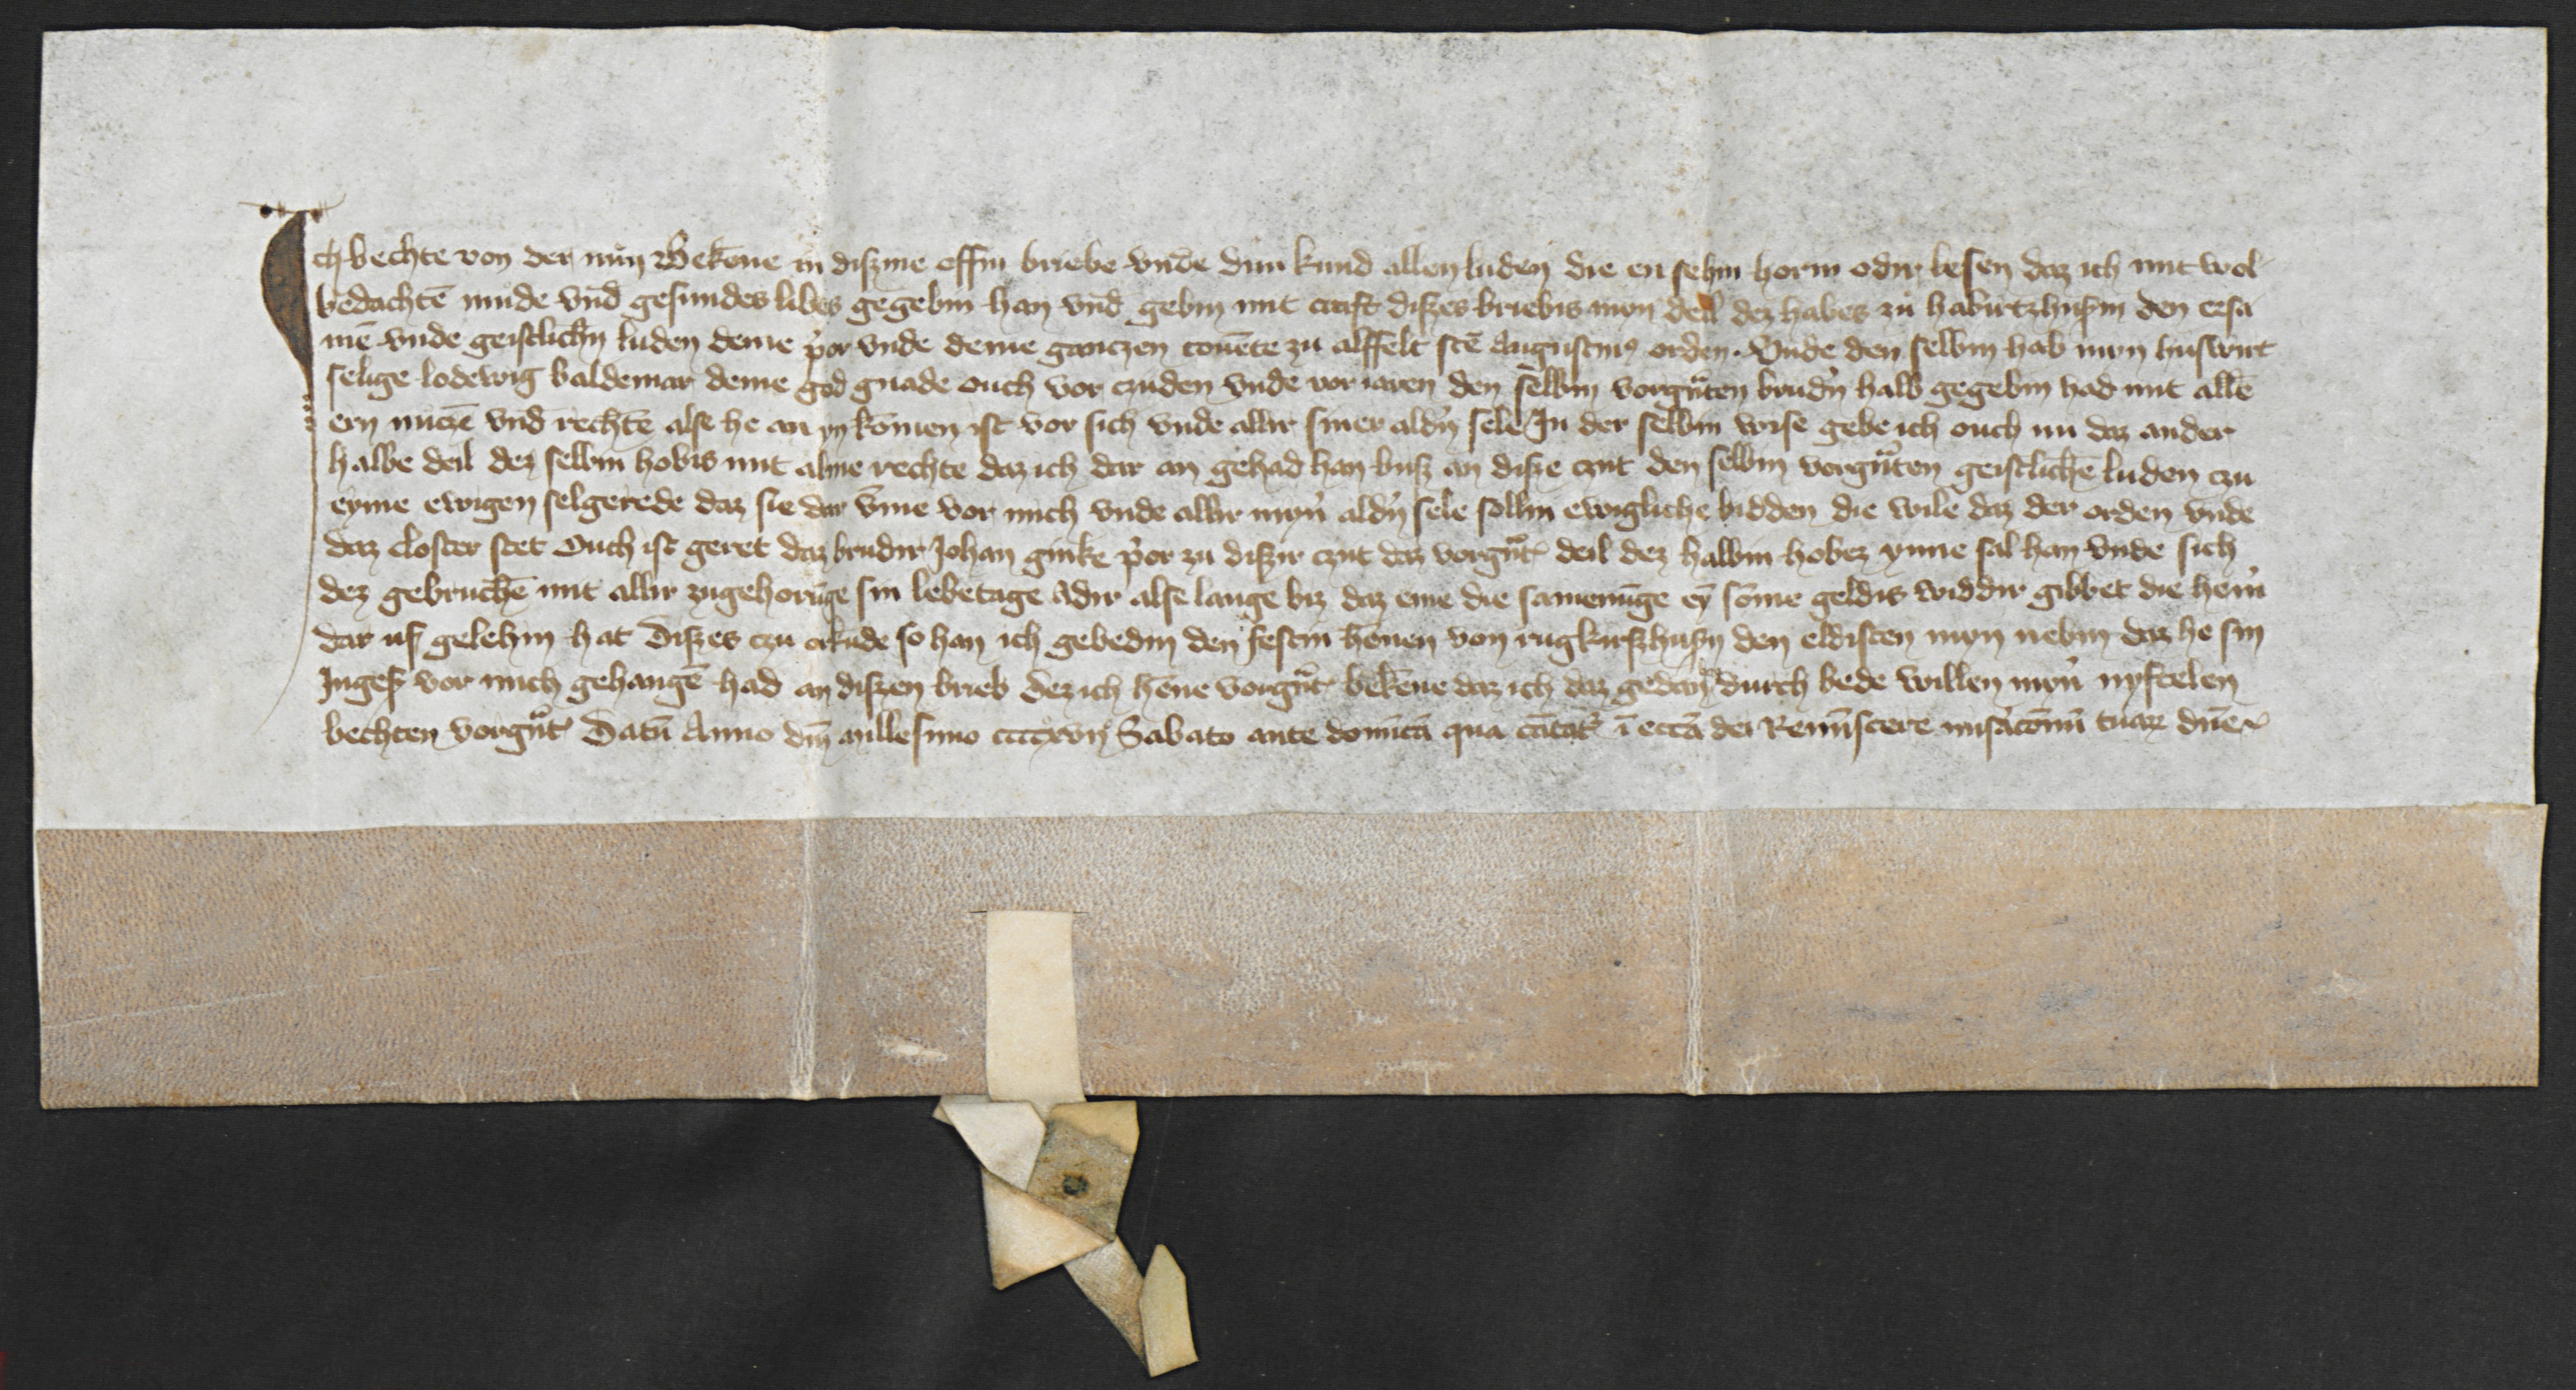 Ich bechte von der nůn Bekēne in diszme offin briebe vnde dun kund allen luden die en sehin horin odir lesen daz ich mit wol
bedachtē mude vnd gesundes libes gegebin han vnd gebin mit craft diszes briebis myn deil dez habes zu habirtzhusin den ersa
mē vnde geistlichn luden deme p̓or vnde deme ganczen couēte zu alffelt scē Augustin9 orden. Vnde den selbin hab myn huswirt
selige lodewig baldemar deme god gnade ouch vor cziden vnde vor iaren den selbin vorgnten brudn̓ halb gegebin had mit allē
ern nuczē vnd rechtē alse he an yn komen ist vor sich vnde allir siner aldn̓ sele In der selbin wise gebe ich ouch nu daz ander
halbe deil dez selbin hobis mit alme rechte daz ich dar an gehad han bisz an disze cziit den selbin vorgnten geistlichē luden czu
eyme ewigen selgerede daz sie dar v̄me vor mich vnde allir myn̓ aldn̓ sele sollin ewigliche bidden die wile daz der orden vnde
daz closter stet Ouch ist geret daz brudir Johan ginke p̓or zu diszir cziit daz vorgnt̓ deil dez halbin hobez ynne sal han vnde sich
dez gebruchē mit allir zugehorūge sin lebetage Adir alse lange biz daz eme die samenūge eȳ sōme geldis widdir gibbet die hem̓
dar uf gelehin hat Diszes czu orkūde so han ich gebedin den festin hēnen von rugkirszhusin den eldisten myn nebin daz he sin
Ingesz vor mich gehangē had an diszen brieb dez ich hēne vorgnt̓ bekēne daz ich daz gedan durch bede willen myn̓ nyftelen
bechten vorgnt̓ Datū Anno dn̄i millesimo ccccxvij Sabato ante domīcā qua cātat̓ ī eccā dei Remīscere mis̓acōnū tuaꝝ dn̄e